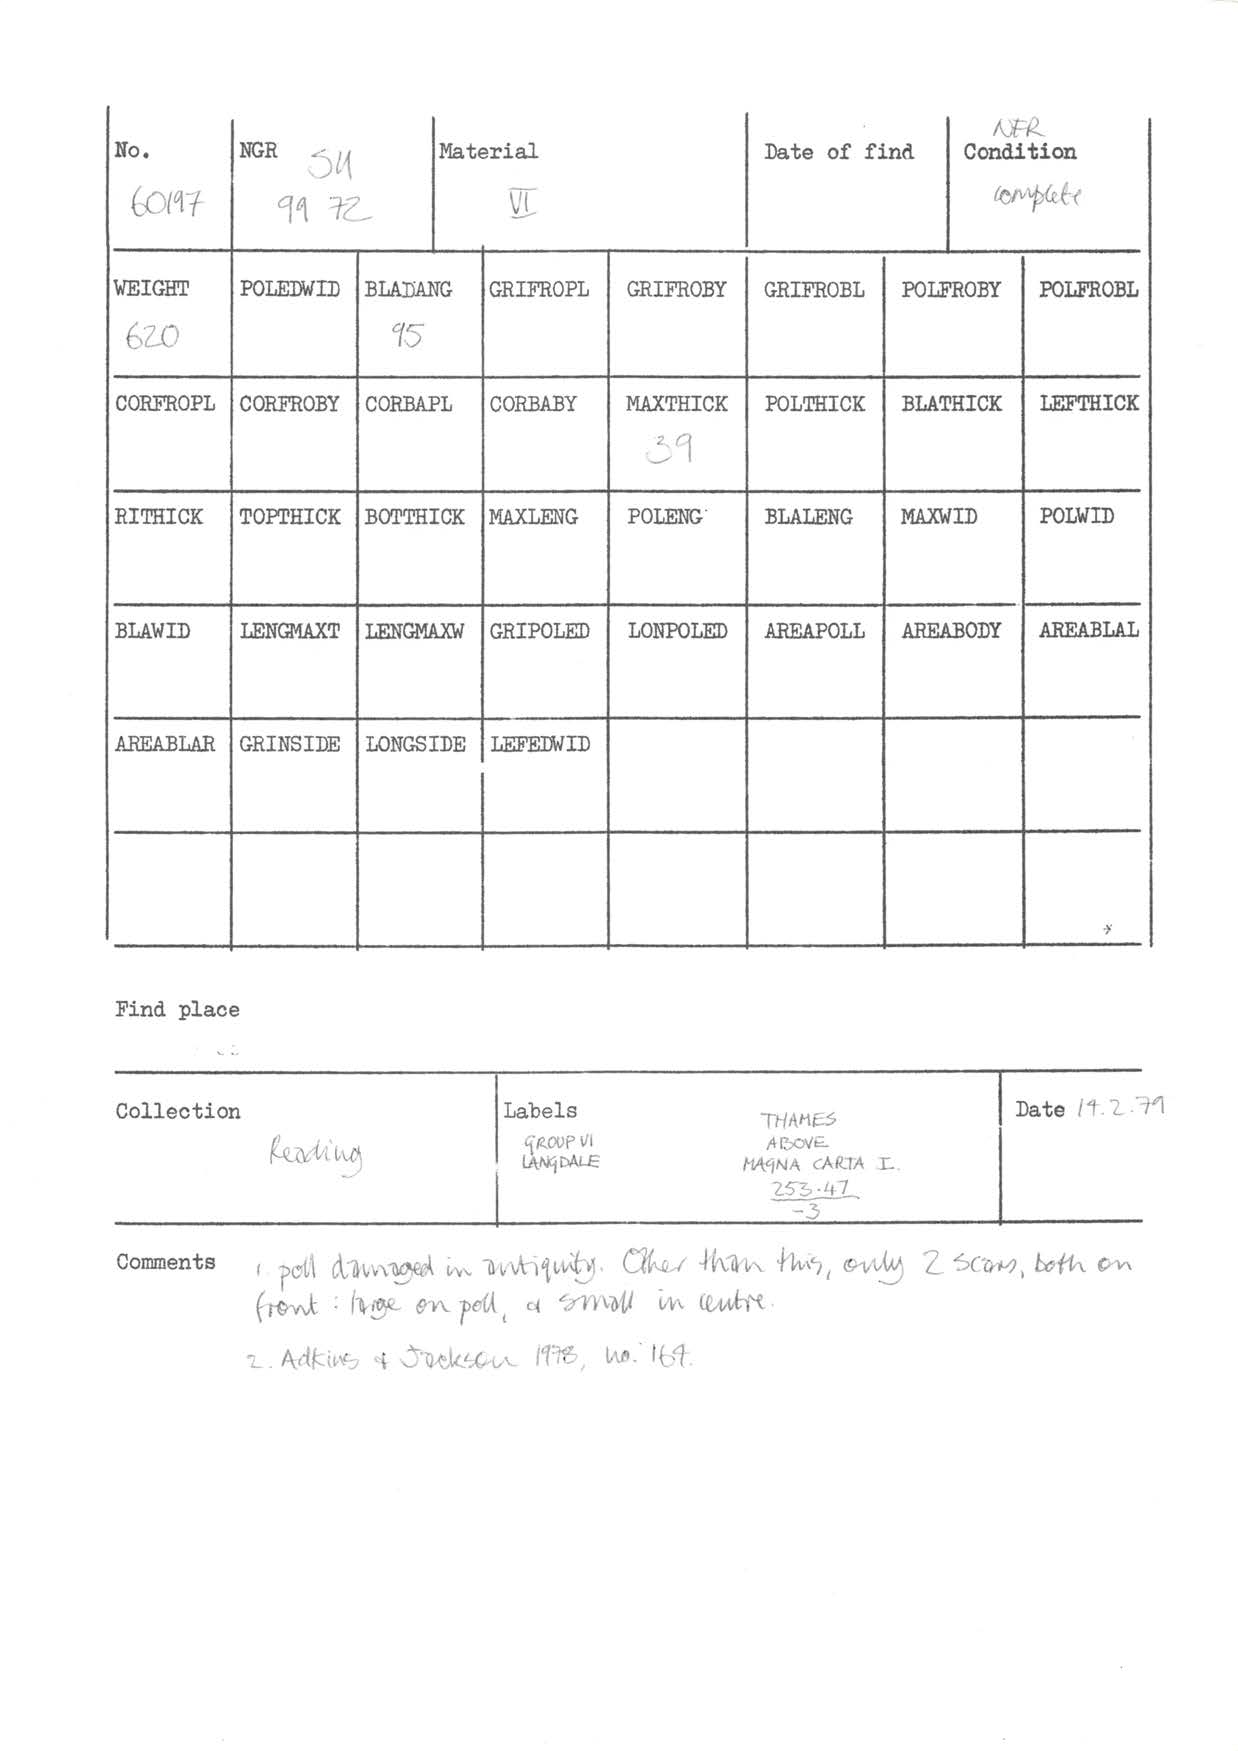 No. NGR SU Material Date of find NFR Condition
60197 99 72 VI complete
WEIGHT POLEDWID BLADANG GRIFROPL GRIFROBY GRIFROBL POLFROBY POLFROBL
620 95
CORFROPL CORFROBY CORBAPL CORBABY MAXTHICK POLTHICK BLATHICK LEFTHICK
39
RITHICK TOPTHICK BOTTHICK MAXLENG POLENG BLALENG MAXWID POLWID
BLAWID LENGMAXT LENGMAXW GRIPOLED LONPOLED AREAPOLL AREABODY AREABLAL
AREABLAR GRINSIDE LONGSIDE LEFEDWID
Find place
Collection Reading
Labels
GROUP VI
LANGDALE
THAMES
ABOVE
MAGNA CARTA I.
253.47
-3
Date 14.2.79
Comments 1. poll damaged in antiquity. Other than this, only 2 scars, both on
front: large on poll, & small in centre.
2. Adkins & Jackson 1978, no. 164.